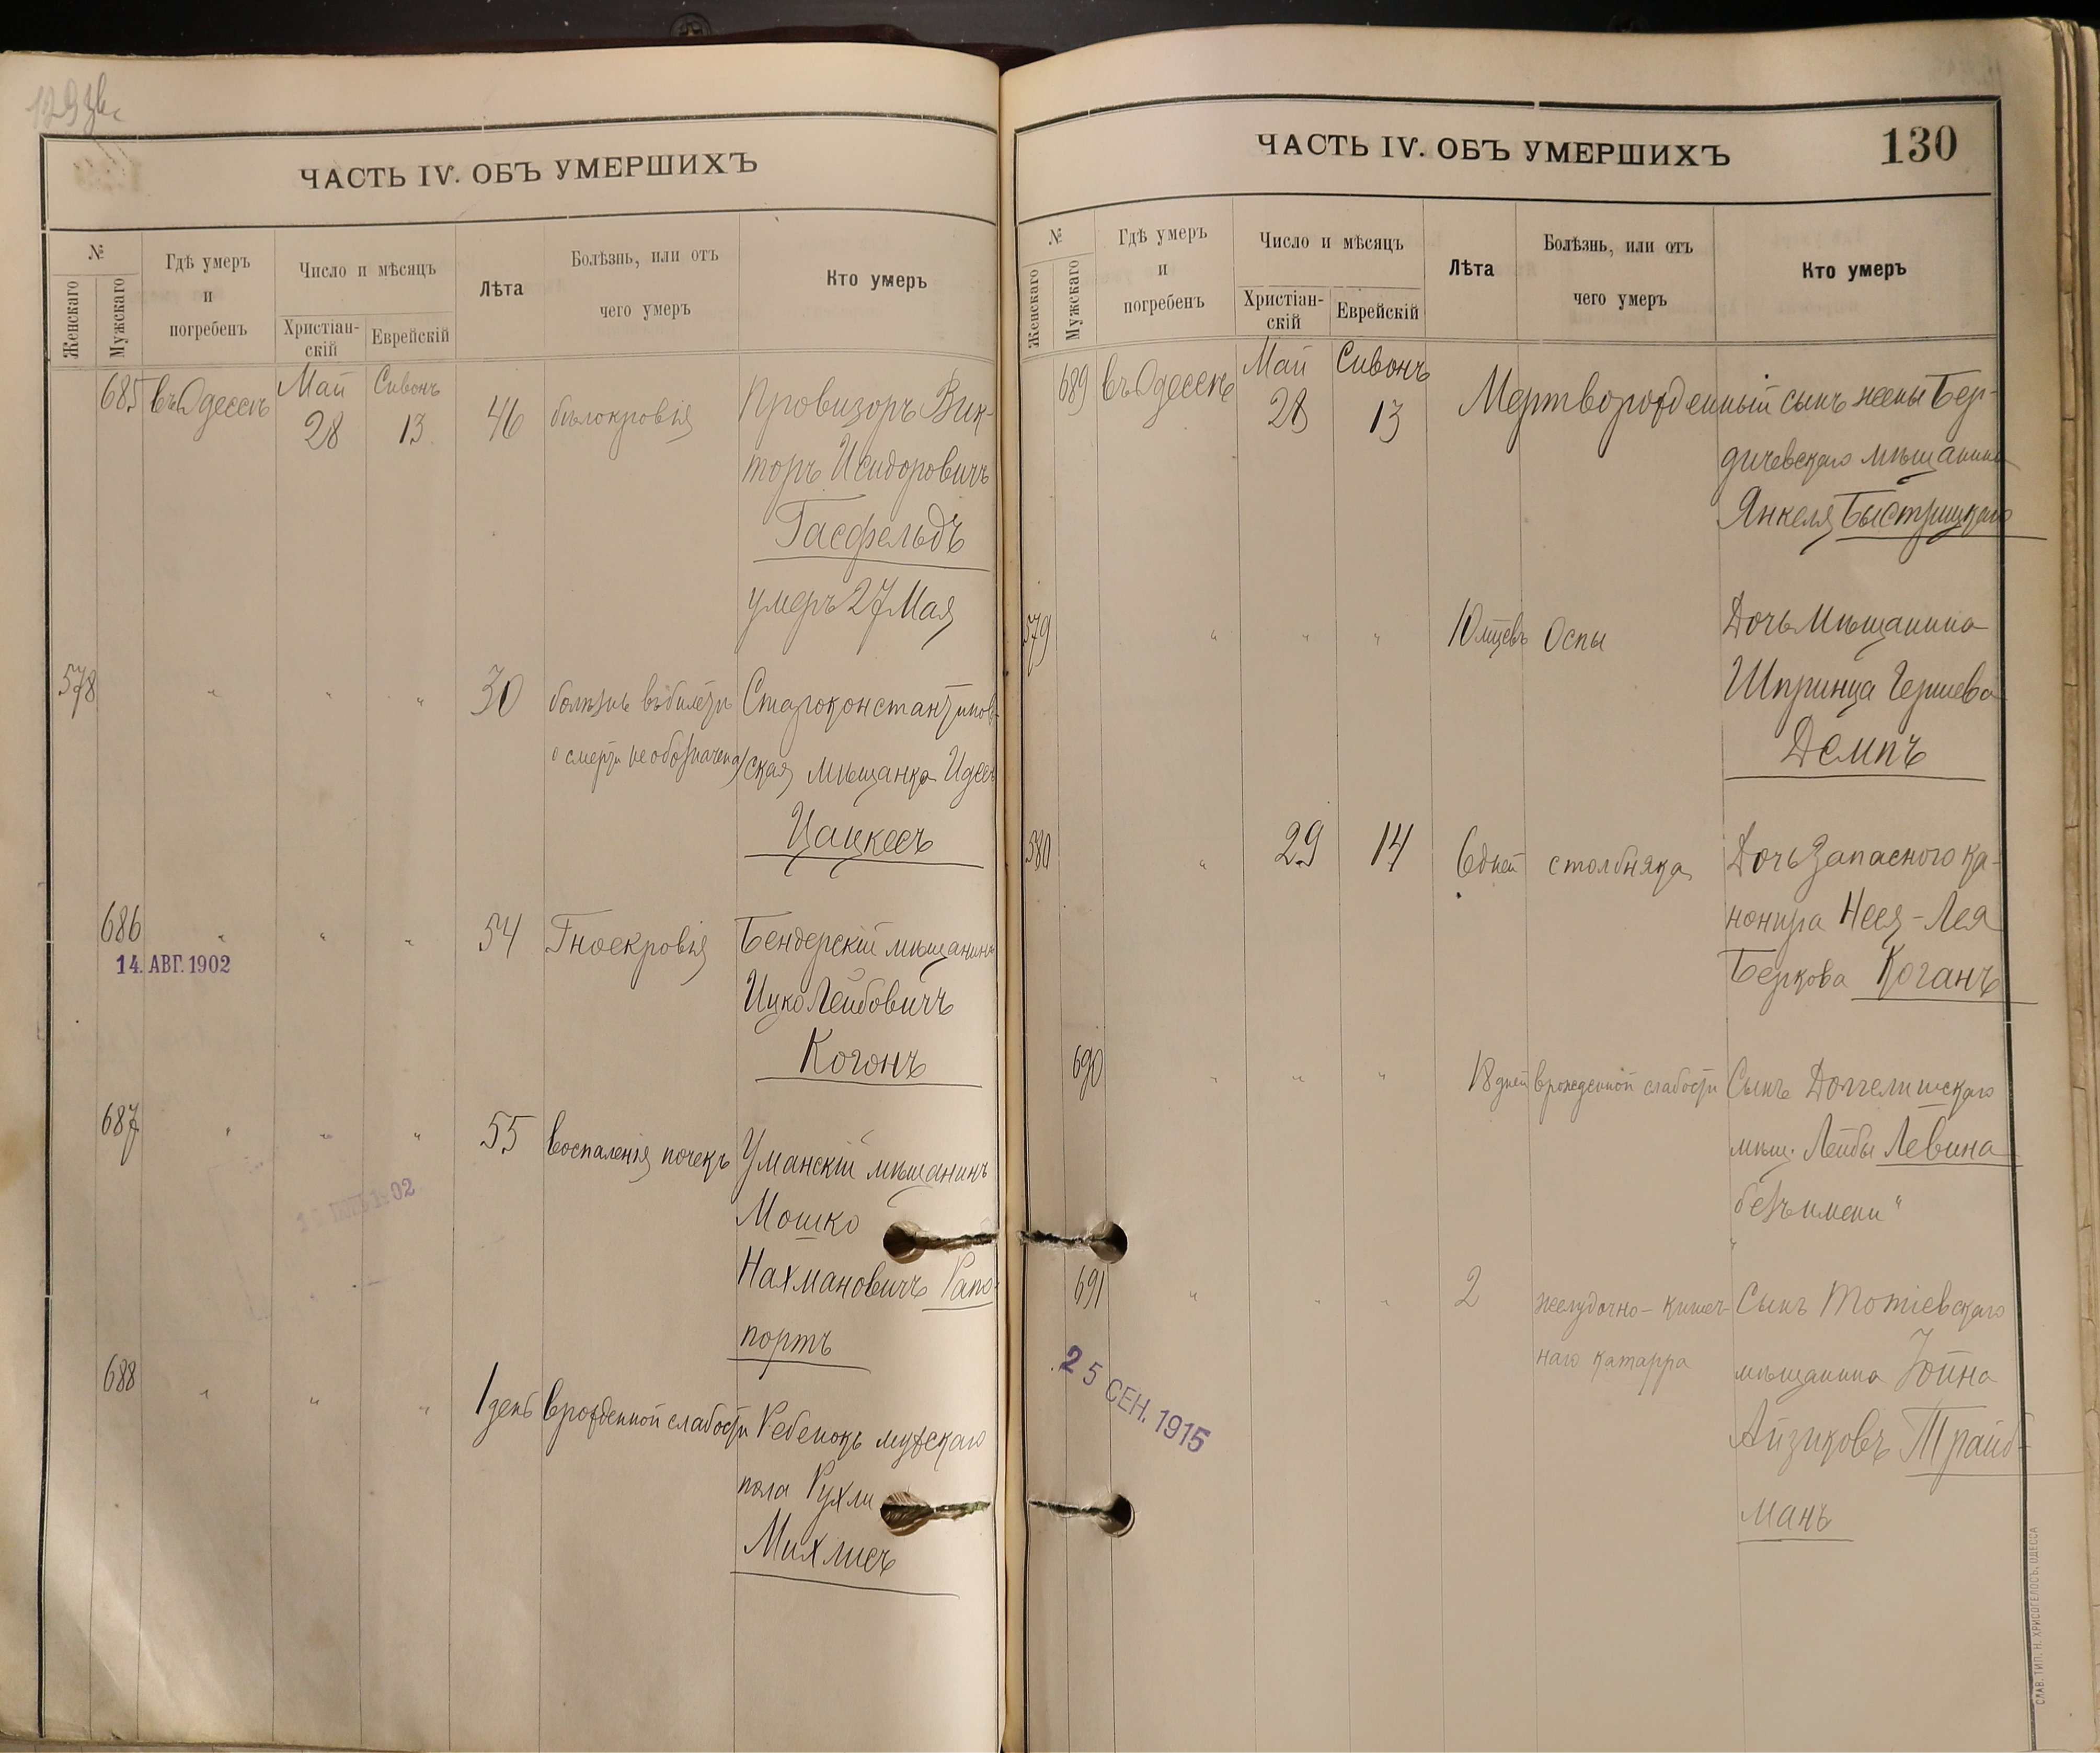 129 зв.
ЧАСТЬ IV. ОБЪ УМЕРШИХЪ
№
Женскаго
Мужскаго
Гдѣ умеръ
и
погребенъ
Число и мѣсяцъ
Христіан-
скій
Еврейскій
Лѣта
Болѣзнь, или отъ
чего умеръ
Кто умеръ
685 въ Одессѣ Май 28 Сивонъ 13 46 бѣлокровія Провизоръ Вик-
торъ Исидоровичъ
Гасфельдъ
умеръ 27 Мая
578 " " " 30 болѣзнь въ билетѣ Староконстантинов-
о смерти не обозначена ская мѣщанка Идесъ
Цацкесъ
686 " " " 54 Гноекровія Бендерскій мѣщанинъ
14. АВГ. 1902
Ицко Лейбовичъ
Когонъ
687 " " " 55 воспаленія почекъ Уманскій мѣщанинъ
Мошко
Нахмановичъ Рапо-
портъ
688 " " " 1 день врожденной слабости Ребенокъ мужскаго
пола Рухли
Михлисъ
ЧАСТЬ IV. ОБЪ УМЕРШИХЪ
130
№
Женскаго
Мужскаго
Гдѣ умеръ
и
погребенъ
Число и мѣсяцъ
Христіан-
скій
Еврейскій
Лѣта
Болѣзнь, или отъ
чего умеръ
Кто умеръ
689 въ Одессѣ Май 28 Сивонъ 13 Мертворожденный сынъ жены Бер-
дичевскаго мѣщанина
Янкеля Быстрицкаго
579 " " " 10 мцевъ Оспы Дочь мѣщанина
Шпринца Гершева
Демпъ
580 " 29 14 6 дней столбняка Дочь запасного ка-
нонира Неея-Лея
Беркова Коганъ
690 " " " 18 дней врожденной слабости Сынъ Догелишскаго
мѣщ. Лейбы Левина
безъ имени "
691 " " " 2 желудочно-кишеч- Сынъ Тотіевскаго
наго катарра мѣщанина Іойна
25 СЕН. 1915
Айзиковъ Трайб-
манъ
СЛАВ. ТИП. Н. ХРИСОГЕЛОСЪ, ОДЕССА